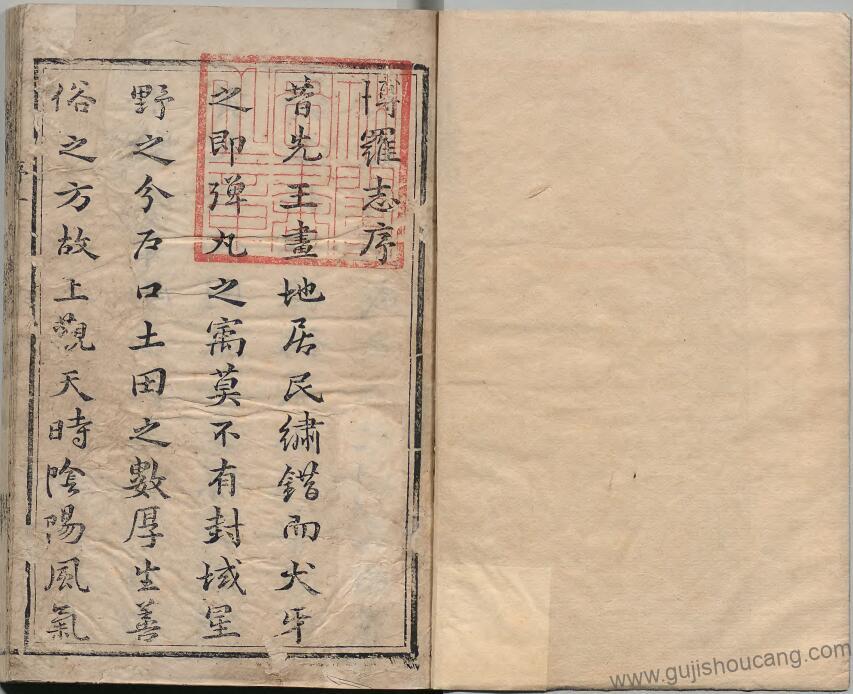 博羅志序
昔先王畫地居民繡錯而犬牙
之即弹丸之寓莫不有封域星
野之分户口土田之數厚生善
俗之方故上觀天時陰陽風氣
序 一
www.gujishoucang.com